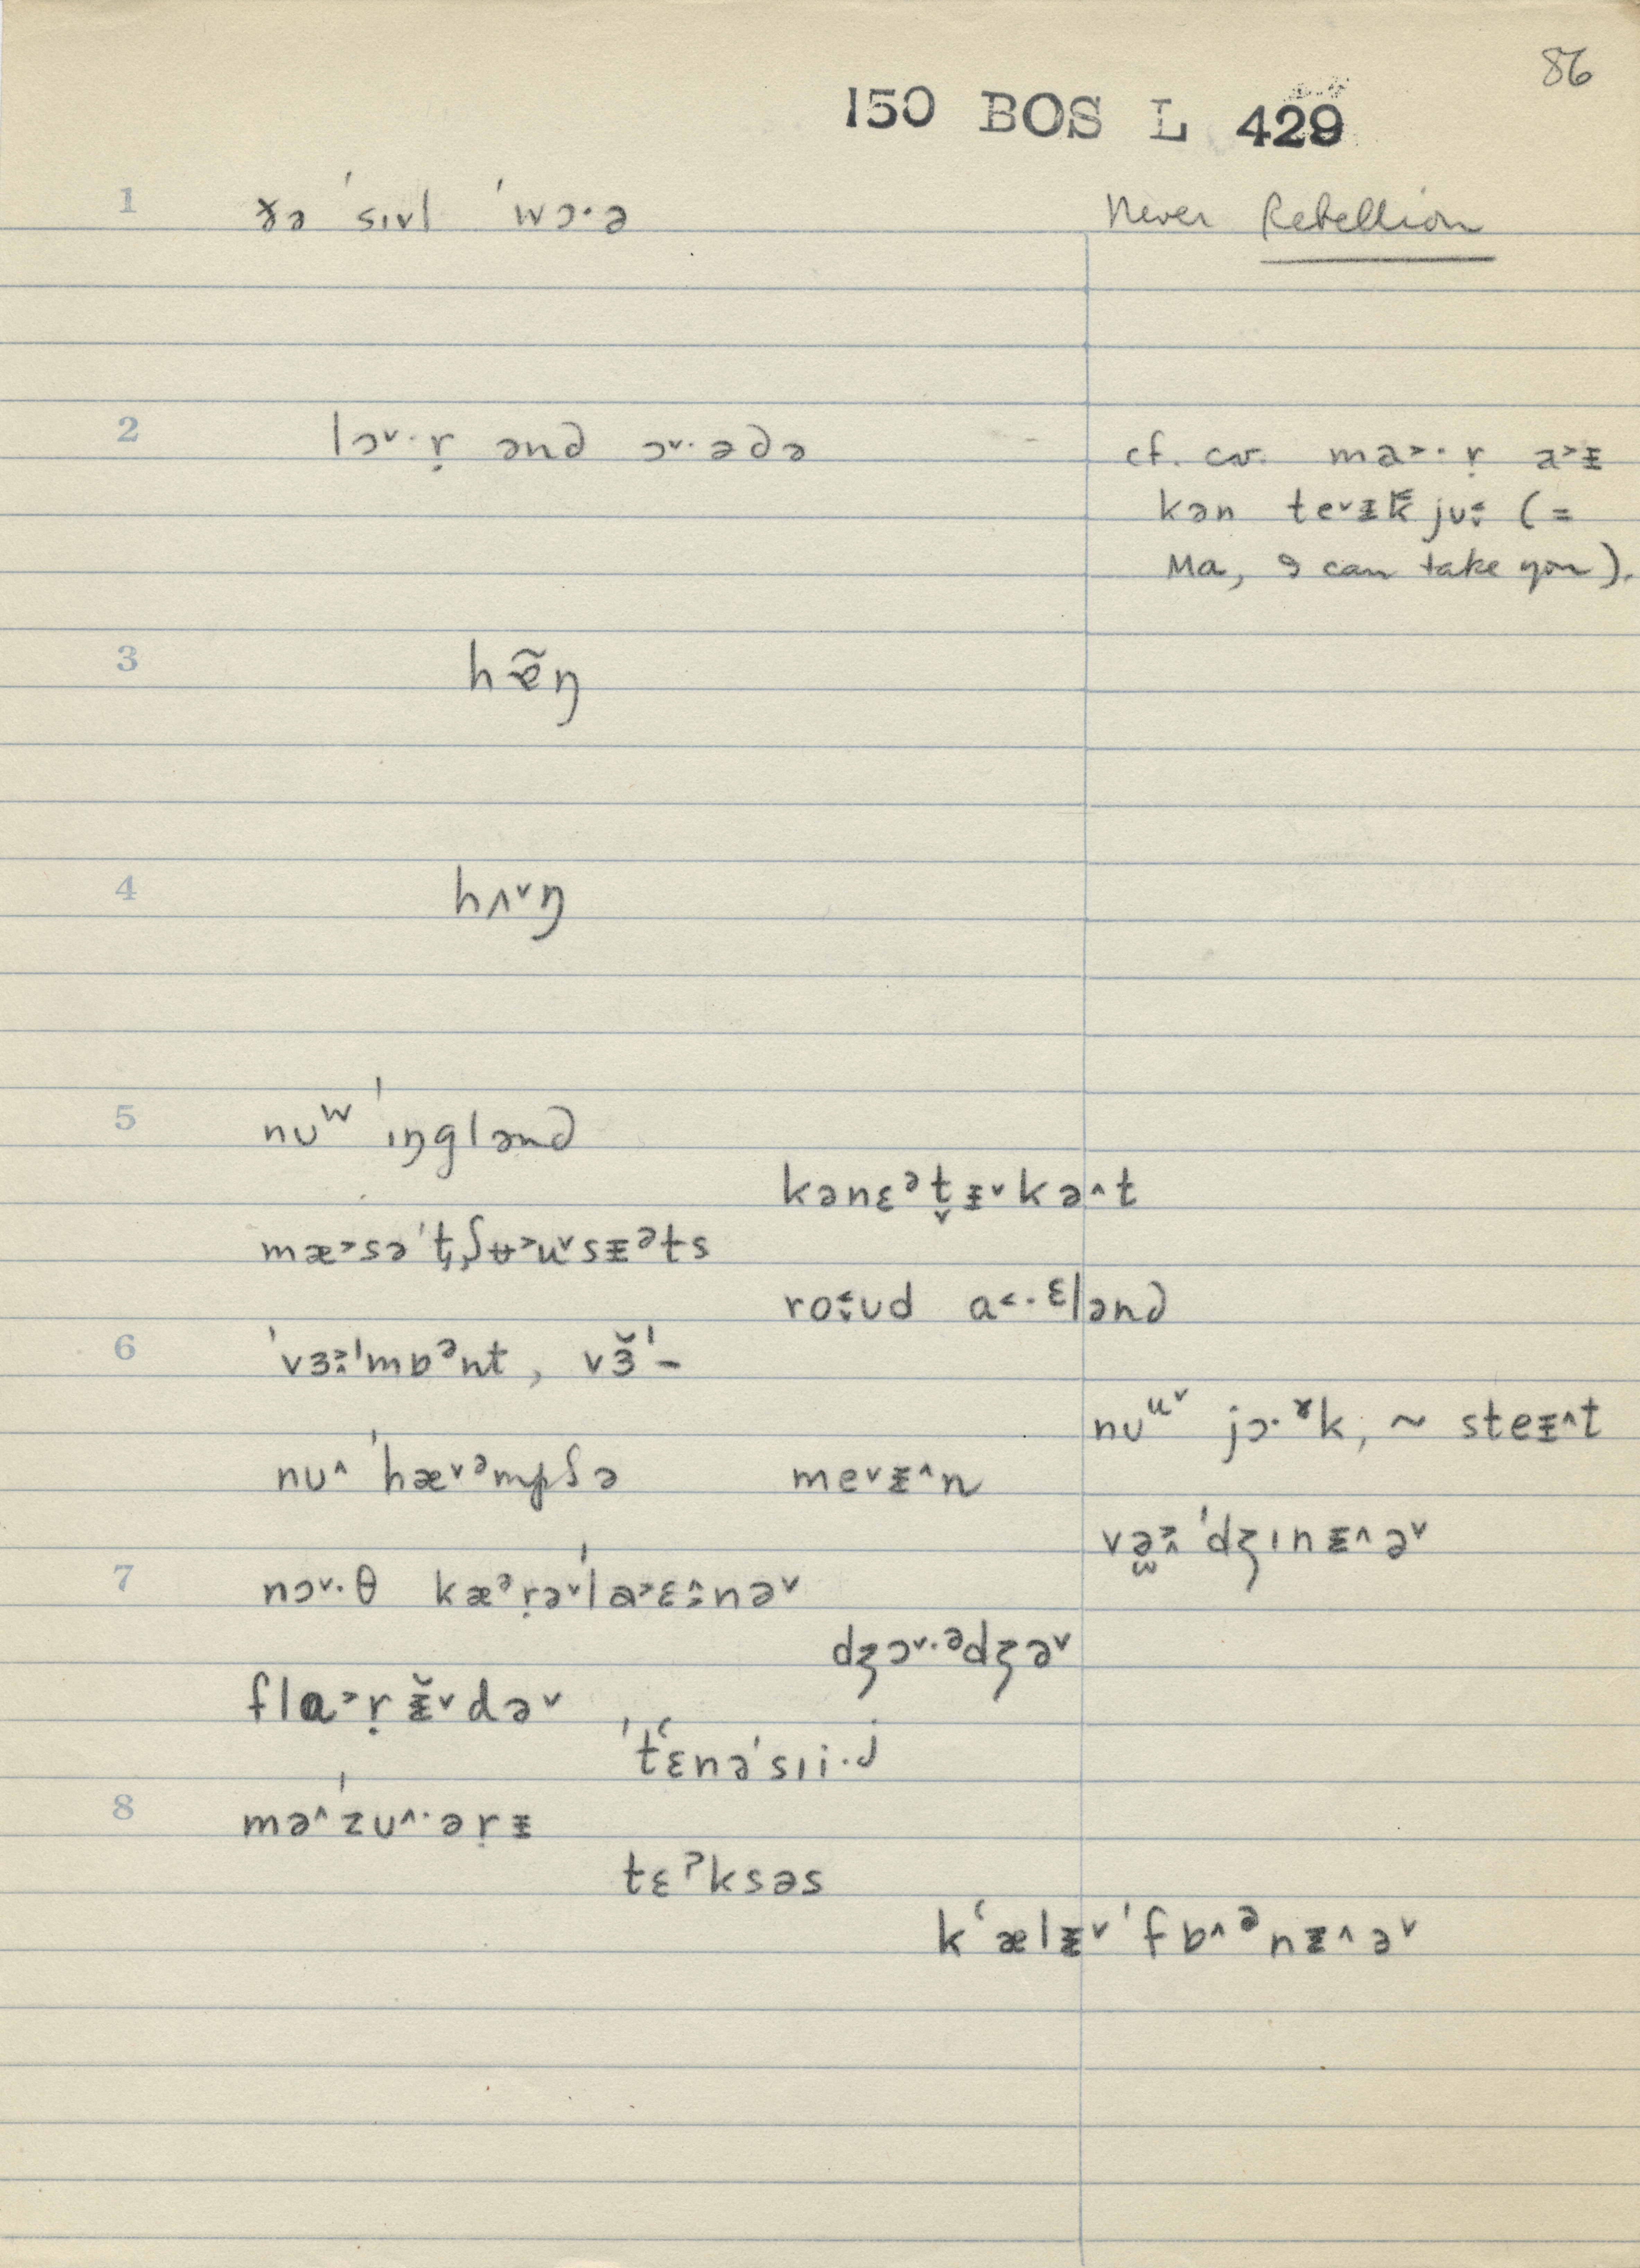 86
150 BOS L 429
1 ɤə ˈsɪvl ˈwɔ·ə Never Rebellion
2 lɔ˅·ṛ ənd ɔ˅·ədə cf. cv. ma˃·ṛ a˃ɪ̵
kən te˅ɪ̵k jʊ (=
Ma, I can take you).
3 hæ̃ŋ
4 hʌ˅ŋ
5 nʊʷ ˈɪŋglənd
kənɛᵊt̬ɪ̵˅kə˄t
mæ˃səˈt̡ʃʉ˃u˅sɪ̵ᵊts
ro˂ud a˂·ᵋlənd
6 ˈvɜ˃ˈmɒᵊnt, vɜ̆ˈ–
nʊᵘ˅ jɔ·ˠk, ~ steɪ̵˄t
nʊ˄ ˈhæ˅ᵊmpʃə me˅ɪ̵˄n
və˃ ˈdʒɪnɪ̵˄ə˅
7 nɔ˅·θ kæᵊṛə˅ˈla˃ɛ˄nə˅
dʒɔ˅·ᵊdʒə˅
flɑ˃ṛɪ̵̆˅də˅
ˈtʻɛnəˈsɪi·ʲ
8 mə˄ˈzʊ˄·əṛɪ̵
tɛˀksəs
kʻælɪ̵˅ˈfɒ˄ᵊnɪ̵˄ə˅